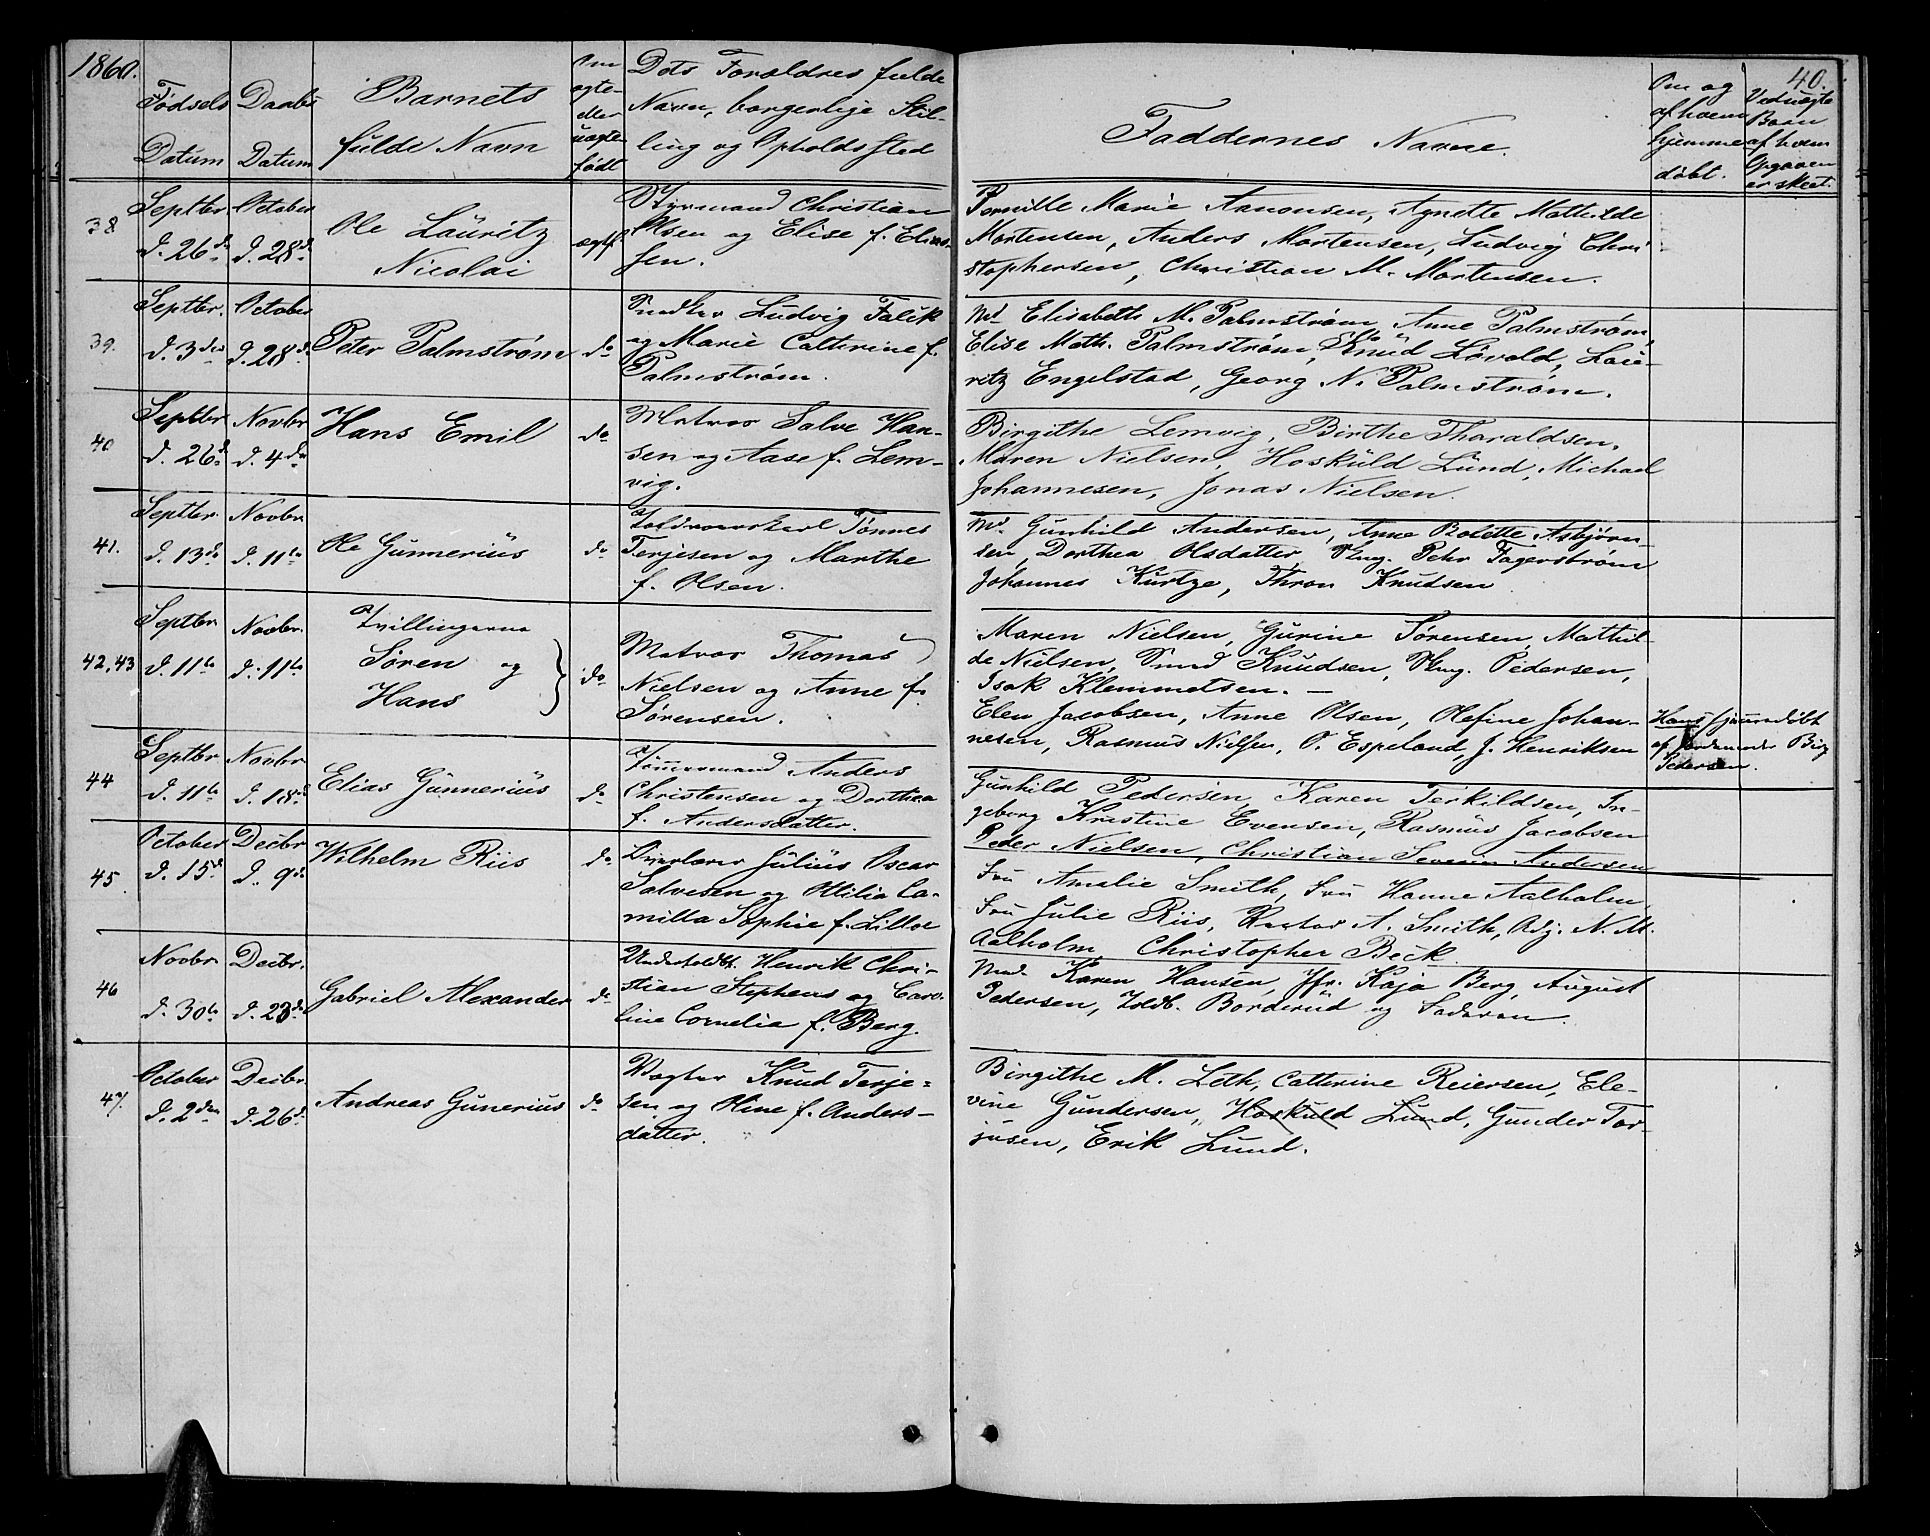 1860.
40.
Fødsels Datum
Daabs Datum
Barnets fulde Navn
Om ægte eller uægte født
Dets Forældres fulde
Navn, borgerlige Stil-
ling og Opholdssted
Faddernes Navne.
Om og af hvem hjemme døbt.
Ved uægte Barn af hvem Opgaven er skeet.
38
Septbr. d. 26de
October d. 28de
Ole Lauritz
Nicolai
ægtf.
Styrmand Christian
Olsen og Elise f. Elias-
sen.
Pernille Marie Aanonsen, Agnette Mathilde
Mortensen, Anders Mortensen, Ludvig Chri-
stophersen, Christian M. Mortensen.
39.
Septbr. d. 3die
October d. 28de
Peter Palmstrøm
do
Snedker Ludvig Falck
og Marie Cathrine f.
Palmstrøm.
Md Elisabeth M. Palmstrøm, Anne Palmstrøm,
Elise Math. Palmstrøm, Knud Løvold, Lau-
ritz Engelstad, Georg N. Palmstrøm.
40
Septbr d. 26d
Novbr d. 4de
Hans Emil
do
Matros Salve Han-
sen og Aase f. Lem-
vig.
Birgithe Lemvig, Birthe Tharaldsen,
Maren Nielsen, Hoskuld Lund, Michael
Johannesen, Jonas Nielsen.
41.
Septbr. d. 13de
Novbr. d. 11te
Ole Gunnerius
do
Toldroerskarl Tønnes
Terjesen og Marthe
f. Olsen.
Md. Gunhild Andersen, Anne Bolette Asbjørn-
sen, Dorthea Olsdatter, Ung. Pehr Fagerstrøm
Johannes Kurtze, Thron Knudsen
42,43
Septbr d. 11te
Novbr. d. 11te
Tvillingerne
Søren og
Hans
do
Matros Thomas
Nielsen og Anne f.
Sørensen.
Maren Nielsen, Gurine Sørensen, Mathil-
de Nielsen, Knudsen, Ung. Pedersen,
Isak Klemmetsen. —
Elen Jacobsen, Anne Olsen, Olefine Johan-
nesen, Rasmus Nielsen, O. Espeland, J. Henriksen
Hans hjemmedøbt
af Jordemoder Birg
Pedersen.
44
Septbr d. 11te
Novbr d. 18de
Elias Gunnerius
do
Tømmermand Anders
Christensen og Dorthea
f. Andersdatter.
Gunhild Pedersen, Karen Terkildsen, In-
geborg Kristine Evensen, Rasmus Jacobsen
Peder Nielsen, Christian Severin Andersen
45.
October d. 15d
Decbr d. 9de
Wilhelm Riis
do
Julius Oscar
Salvesen og Ottilia Ca-
milla Sophie f. Lilloe
Fru Amalie Smith, Fru Hanne Aalholm,
Fru Julie Riis, Rector A. Smith, Adj. N. M.
Aalholm Christopher Beck.
46
Novbr d. 30te
Decbr. d. 23de
Gabriel Alexander
do
Undertoldbt. Henrik Chri-
stian Stephens og Caro-
line Cornelia f. Berg.
Md Karen Hansen, Jfr. Kaja Berg, August
Pedersen, Toldb. Borderud og Faderen.
47.
October d. 2den
Decbr. d. 26d.
Andreas Gunerius
do
Vægter Knud Terje-
sen og Oline f. Anders-
datter.
Birgithe M. Leth, Cathrine Reiersen, Ele-
vine Gundersen, Hoskuld Lund, Gunder Tor-
jusen, Erik Lund.